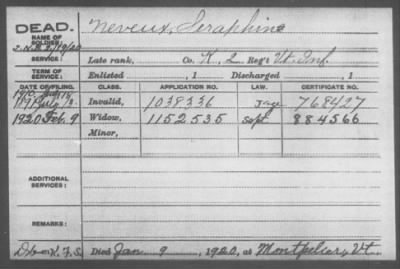 DEAD.
NAME OF SOLDIER:
Neveux, Seraphine
SERVICE:
Late rank, Co. K, 2 Reg't Vt. Inf.
TERM OF SERVICE:
Enlisted , 1 Discharged , 1
DATE OF FILING. CLASS. APPLICATION NO. LAW. CERTIFICATE NO.
Invalid, 1038336 768427
1920 Feb. 9 Widow, 1152535 Sept. 884566
Minor,
ADDITIONAL SERVICES:
REMARKS:
Died Jan. 9, 1920, at Montpelier, Vt.